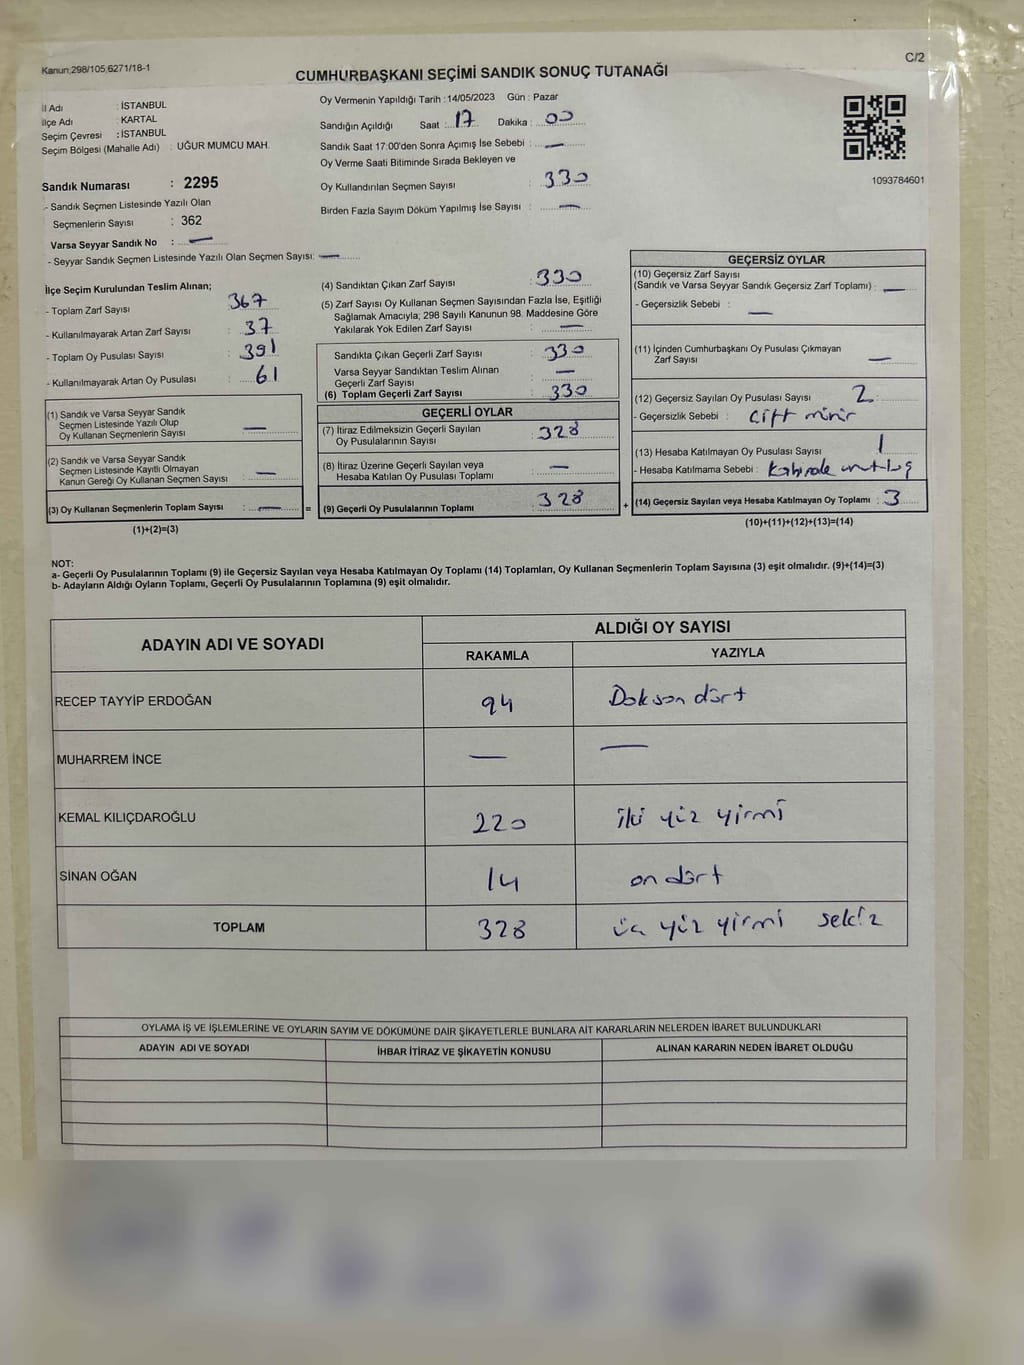 Kanun;298/105,6271/18-1
C/2
CUMHURBAŞKANI SEÇİMİ SANDIK SONUÇ TUTANAĞI
İl Adı : İSTANBUL
İlçe Adı : KARTAL
Seçim Çevresi : İSTANBUL
Seçim Bölgesi (Mahalle Adı) : UĞUR MUMCU MAH.
Sandık Numarası : 2295
- Sandık Seçmen Listesinde Yazılı Olan
Seçmenlerin Sayısı : 362
Varsa Seyyar Sandık No : —
- Seyyar Sandık Seçmen Listesinde Yazılı Olan Seçmen Sayısı: —
Oy Vermenin Yapıldığı Tarih : 14/05/2023 Gün : Pazar
Sandığın Açıldığı Saat : 17 Dakika : 00
Sandık Saat 17:00'den Sonra Açımış İse Sebebi : —
Oy Verme Saati Bitiminde Sırada Bekleyen ve
Oy Kullandırılan Seçmen Sayısı : 330
Birden Fazla Sayım Döküm Yapılmış İse Sayısı : —
1093784601
İlçe Seçim Kurulundan Teslim Alınan;
- Toplam Zarf Sayısı : 367
- Kullanılmayarak Artan Zarf Sayısı : 37
- Toplam Oy Pusulası Sayısı : 391
- Kullanılmayarak Artan Oy Pusulası : 61
(1) Sandık ve Varsa Seyyar Sandık
Seçmen Listesinde Yazılı Olup
Oy Kullanan Seçmenlerin Sayısı : —
(2) Sandık ve Varsa Seyyar Sandık
Seçmen Listesinde Kayıtlı Olmayan
Kanun Gereği Oy Kullanan Seçmen Sayısı : —
(3) Oy Kullanan Seçmenlerin Toplam Sayısı : — =
(1)+(2)=(3)
(4) Sandıktan Çıkan Zarf Sayısı : 330
(5) Zarf Sayısı Oy Kullanan Seçmen Sayısından Fazla İse, Eşitliği
Sağlamak Amacıyla; 298 Sayılı Kanunun 98. Maddesine Göre
Yakılarak Yok Edilen Zarf Sayısı : —
Sandıkta Çıkan Geçerli Zarf Sayısı : 330
Varsa Seyyar Sandıktan Teslim Alınan
Geçerli Zarf Sayısı : —
(6) Toplam Geçerli Zarf Sayısı : 330
GEÇERLİ OYLAR
(7) İtiraz Edilmeksizin Geçerli Sayılan
Oy Pusulalarının Sayısı : 328
(8) İtiraz Üzerine Geçerli Sayılan veya
Hesaba Katılan Oy Pusulası Toplamı : —
(9) Geçerli Oy Pusulalarının Toplamı : 328 +
GEÇERSİZ OYLAR
(10) Geçersiz Zarf Sayısı
(Sandık ve Varsa Seyyar Sandık Geçersiz Zarf Toplamı) : —
- Geçersizlik Sebebi : —
(11) İçinden Cumhurbaşkanı Oy Pusulası Çıkmayan
Zarf Sayısı : —
(12) Geçersiz Sayılan Oy Pusulası Sayısı : 2
- Geçersizlik Sebebi : Çift mühür
(13) Hesaba Katılmayan Oy Pusulası Sayısı : 1
- Hesaba Katılmama Sebebi : Kabinde
(14) Geçersiz Sayılan veya Hesaba Katılmayan Oy Toplamı : 3
(10)+(11)+(12)+(13)=(14)
NOT:
a- Geçerli Oy Pusulalarının Toplamı (9) ile Geçersiz Sayılan veya Hesaba Katılmayan Oy Toplamı (14) Toplamları, Oy Kullanan Seçmenlerin Toplam Sayısına (3) eşit olmalıdır. (9)+(14)=(3)
b- Adayların Aldığı Oyların Toplamı, Geçerli Oy Pusulalarının Toplamına (9) eşit olmalıdır.
ADAYIN ADI VE SOYADI
ALDIĞI OY SAYISI
RAKAMLA YAZIYLA
RECEP TAYYİP ERDOĞAN 94 Doksan dört
MUHARREM İNCE — —
KEMAL KILIÇDAROĞLU 220 iki yüz yirmi
SİNAN OĞAN 14 on dört
TOPLAM 328 üç yüz yirmi sekiz
OYLAMA İŞ VE İŞLEMLERİNE VE OYLARIN SAYIM VE DÖKÜMÜNE DAİR ŞİKAYETLERLE BUNLARA AİT KARARLARIN NELERDEN İBARET BULUNDUKLARI
ADAYIN ADI VE SOYADI İHBAR İTİRAZ VE ŞİKAYETİN KONUSU ALINAN KARARIN NEDEN İBARET OLDUĞU